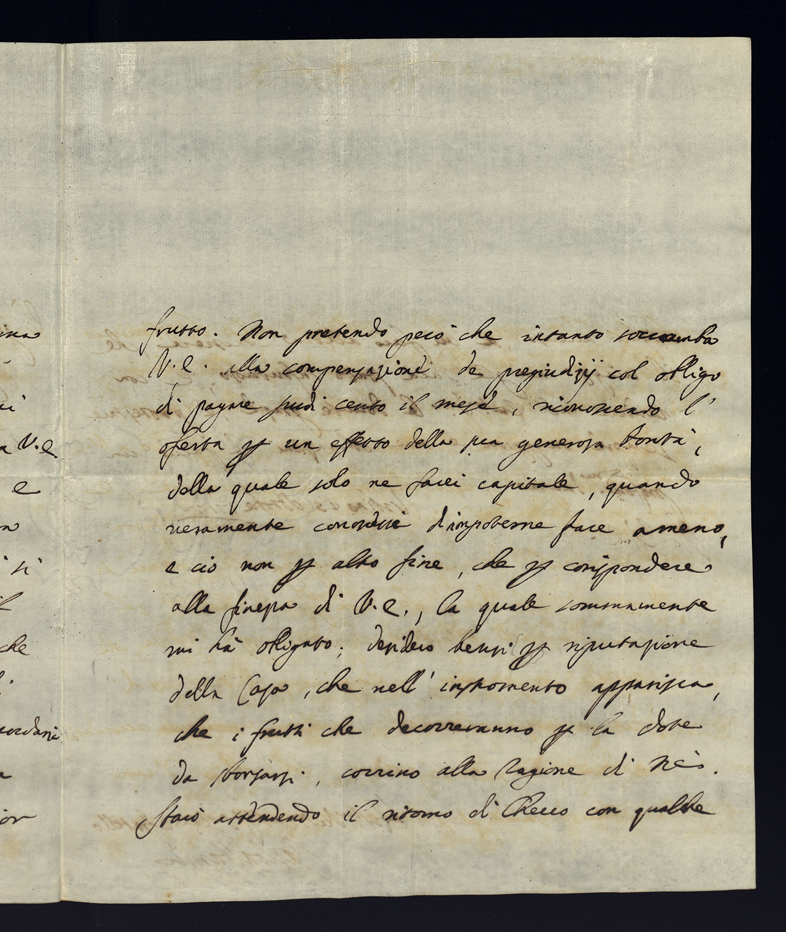 frutto. Non pretendo però che intanto soccomba
V.E. alla compensazione de pregiudizij col obligo
di pagare scudi cento il mese, riconoscendo l'
oferta per un effetto della sua generosa bontà,
della quale solo ne farei capitale, quando
veramente conoscessi d'impoterne fare ameno,
e ciò non per altro fine, che per corispondere
alla finezza di V.E., la quale sommamente
mi hà obligato; desidero bensì per riputazione
della Casa, che nell' instromento apparisca,
che i frutti che decorreranno per la dote
da sborsarsi, corrino alla ragione di trè.
Starò attendendo il ritorno di Checco con qualche